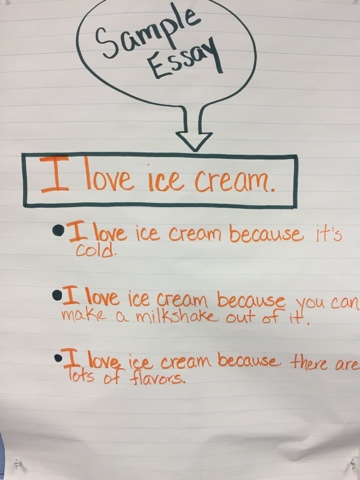 Sample
Essay
I love ice cream.
I love ice cream because it's
cold.
I love ice cream because you can
make a milkshake out of it.
I love ice cream because there are
lots of flavors.